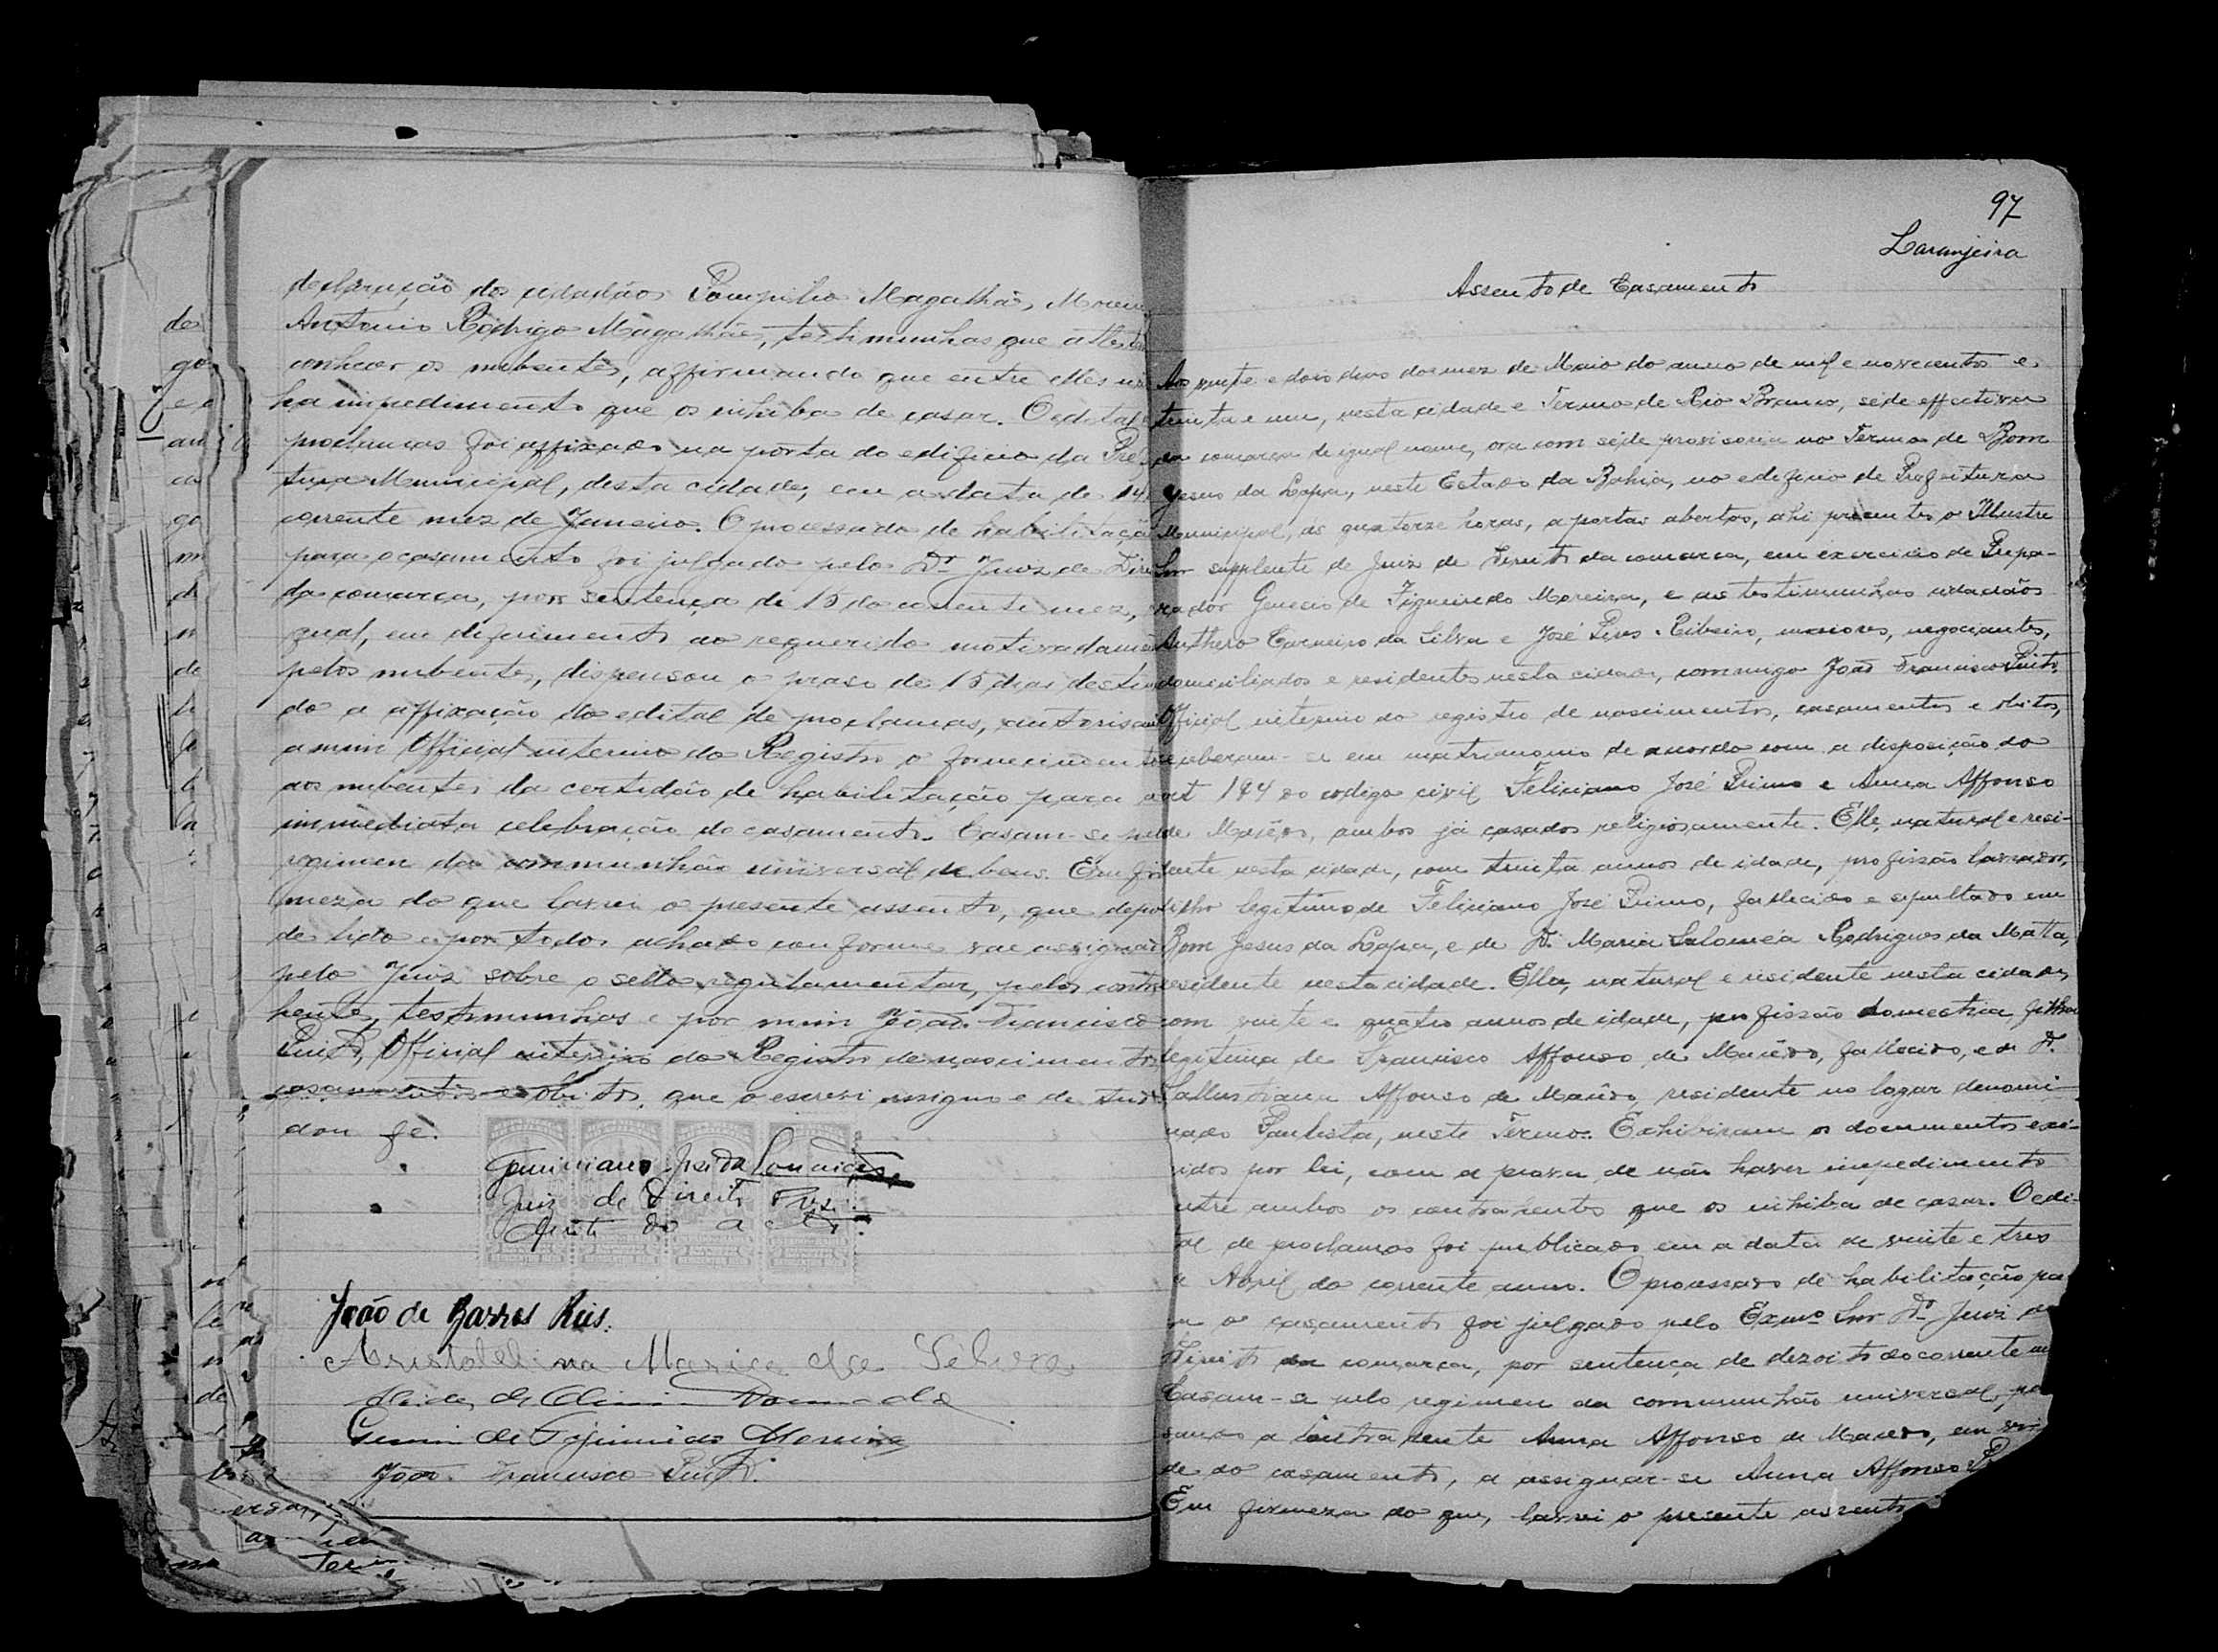 declaração dos cidadãos Pompilio Magalhães Moreira
Antonio Rodrigo Magalhães, testimunhas que attestam
conhecer os nubentes, affirmando que entre elles não
ha impedimento que os inhiba de casar. O edital de
proclamas foi affixado na porta do edificio da Prefei-
tura Municipal, desta cidade, em a data de 14
corrente mez de Janeiro. O processado de habilitação
para o casamento foi julgado pelo Dr. Juiz de Direito
da comarca, por sentença de 15 do corrente mez,
qual, em deferimento ao requerido motivadamente
pelos nubentes, dispensou o praso de 15 dias destina-
do a affixação do edital de proclamas, autorisando
a mim Official interino do Registro o fornecimento
aos nubentes da certidão de habilitação para a
immediata celebração do casamento. Casam-se pelo
regimen da communhão universal de bens. Em fir-
meza do que lavrei o presente assento, que depois
de lido e por todos achado conforme vae assignado
pelo Juiz sobre o sello regulamentar, pelos contra-
hentes, testimunhas e por mim João Francisco
Pinto, Official interino do Registro de nascimentos,
casamentos e obitos, que o escrevi assigno e de tudo
dou fé.
Juiz de Direito
João de Barros Reis.
Aristotelina Maria da Silva
João Francisco Pinto.
97
Laranjeira
Assento de Casamento
Aos vinte e dois dias do mez de Maio do anno de mil e novecentos e
trinta e um, nesta cidade e Termo de Rio Branco, séde effectiva
da comarca de igual nome, ora com séde provisoria no Termo de Bom
Jesus da Lapa, neste Estado da Bahia, no edificio de Prefeitura
Municipal, ás quatorze horas, a portas abertas, ahi presentes o Illustre
Snr supplente de Juiz de Direito da comarca, em exercicio de Prepa-
rador Genesio de Figueiredo Moreira, e as testimunhas cidadãos
Anthero Carneiro da Silva e José Pires Ribeiro, maiores, negociantes,
domiciliados e residentes nesta cidade, commigo João Francisco Pinto,
Official interino do registro de nascimentos, casamentos e obitos,
receberam-se em matrimonio de acordo com a disposição do
art 194 do codigo civil Feliciano José Primo e Anna Affonso
de Macêdo, ambos já casados religiosamente. Elle, natural e resi-
dente nesta cidade, com trinta annos de idade, profissão lavrador,
filho legitimo de Feliciano José Primo, fallecido e sepultado em
Bom Jesus da Lapa, e de D. Maria Saloméa Rodrigues da Matta,
residente nesta cidade. Ella, natural e residente nesta cidade,
com vinte e quatro annos de idade, profissão domestica, filha
legitima de Francisco Affonso de Macêdo, fallecido, e de D.
Sallustiana Affonso de Macêdo, residente no logar denomi-
nado Paulista, neste Termo. Exhibiram os documentos exi-
gidos por lei, com a prova de não haver impedimento
entre ambos os contrahentes que os inhiba de casar. O edi-
tal de proclamas foi publicado em a data de vinte e tres
de Abril do corrente anno. O processado de habilitação pa-
ra o casamento foi julgado pelo Exmo Snr Dr. Juiz de
Direito da comarca, por sentença de dezoito do corrente
Casam-se pelo regimen da communhão universal, pas-
sando a contrahente Anna Affonso de Macedo, em vir-
de do casamento, a assignar-se Anna Affonso
Em firmeza do que, lavrei o presente assento